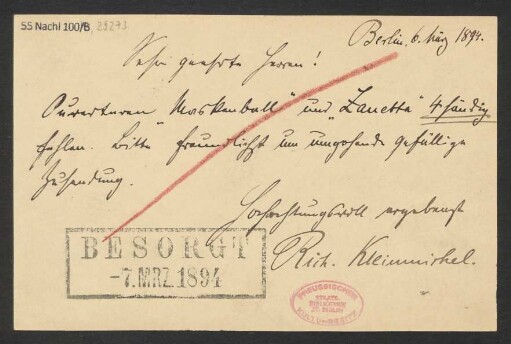 55 Nachl 100/B, 29273
Berlin, 6. März 1894.
Sehr geehrte Herren!
Ouverturen "Maskenball" und "Zanetta" 4händig
fehlen. Bitte freundlichst um umgehende gefällige
Zusendung.
Hochachtungsvoll ergebenst
Rich. Kleinmichel.
BESORGT
-7.MRZ.1894
PREUSSISCHER
STAATS-
BIBLIOTHEK
ZU BERLIN